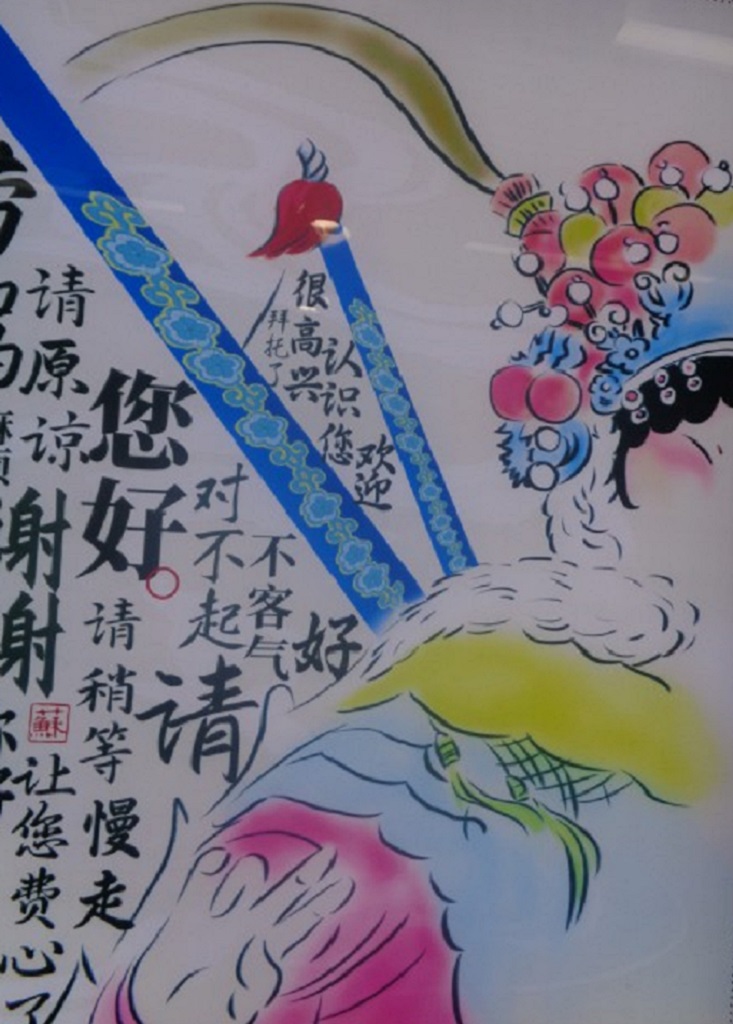 很高兴
认识您
欢迎
拜托了
不客气
好
对不起
请
您好。
请稍等
慢走
请原谅
谢谢
蘇
让您费心了